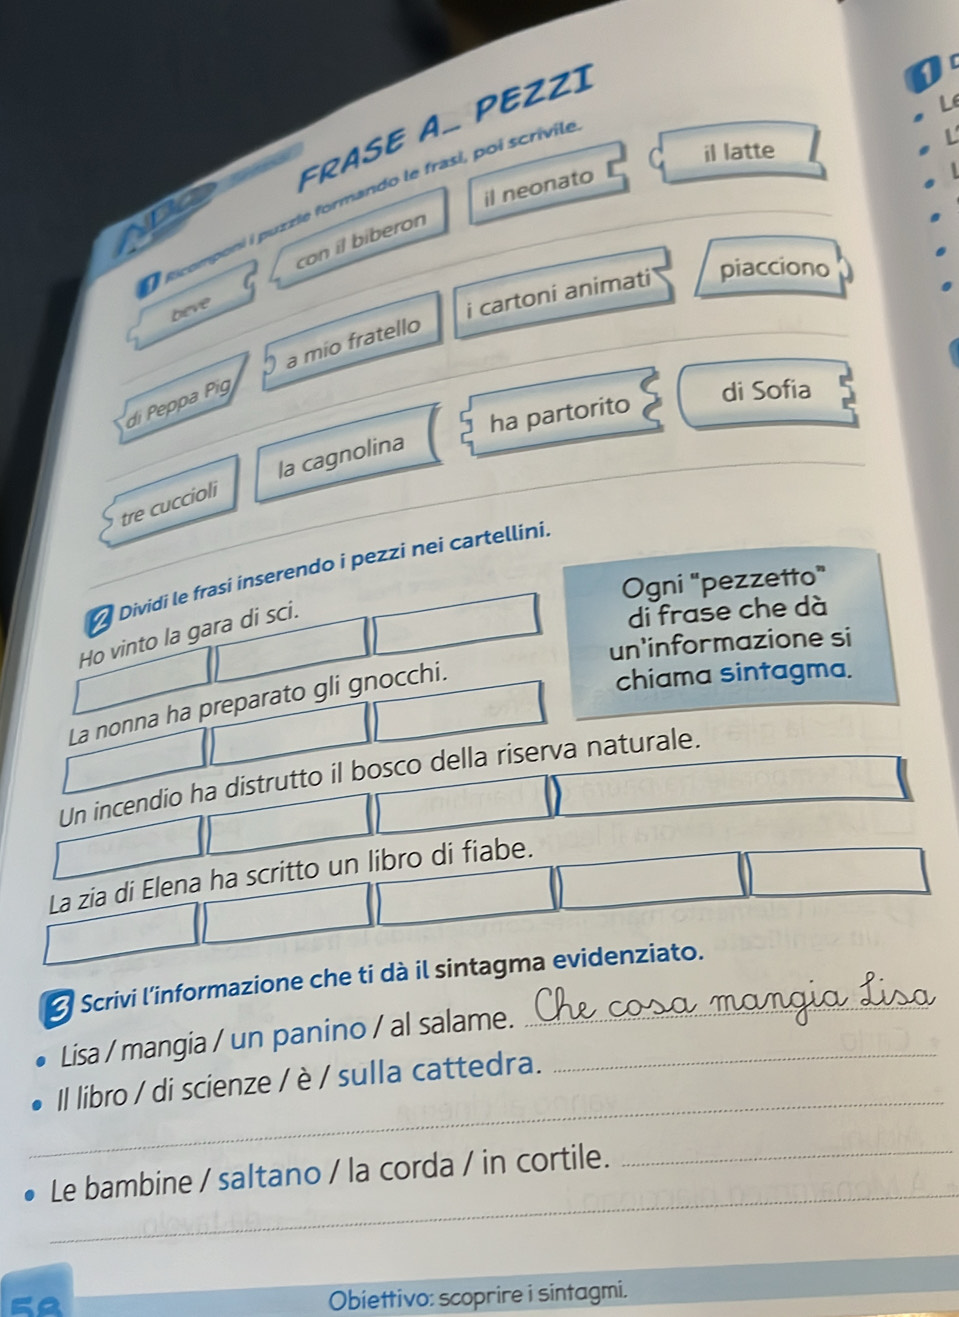 FRASE A... PEZZI
1 Ricomponi i puzzle formando le frasi, poi scrivile.
beve
con il biberon
il neonato
il latte
di Peppa Pig
a mio fratello
i cartoni animati
piacciono
tre cuccioli
la cagnolina
ha partorito
di Sofia
2 Dividi le frasi inserendo i pezzi nei cartellini.
Ho vinto la gara di sci.
La nonna ha preparato gli gnocchi.
Ogni "pezzetto"
di frase che dà
un'informazione si
chiama sintagma.
Un incendio ha distrutto il bosco della riserva naturale.
La zia di Elena ha scritto un libro di fiabe.
3 Scrivi l'informazione che ti dà il sintagma evidenziato.
• Lisa / mangia / un panino / al salame. Che cosa mangia Lisa
• Il libro / di scienze / è / sulla cattedra.
• Le bambine / saltano / la corda / in cortile.
58
Obiettivo: scoprire i sintagmi.
1